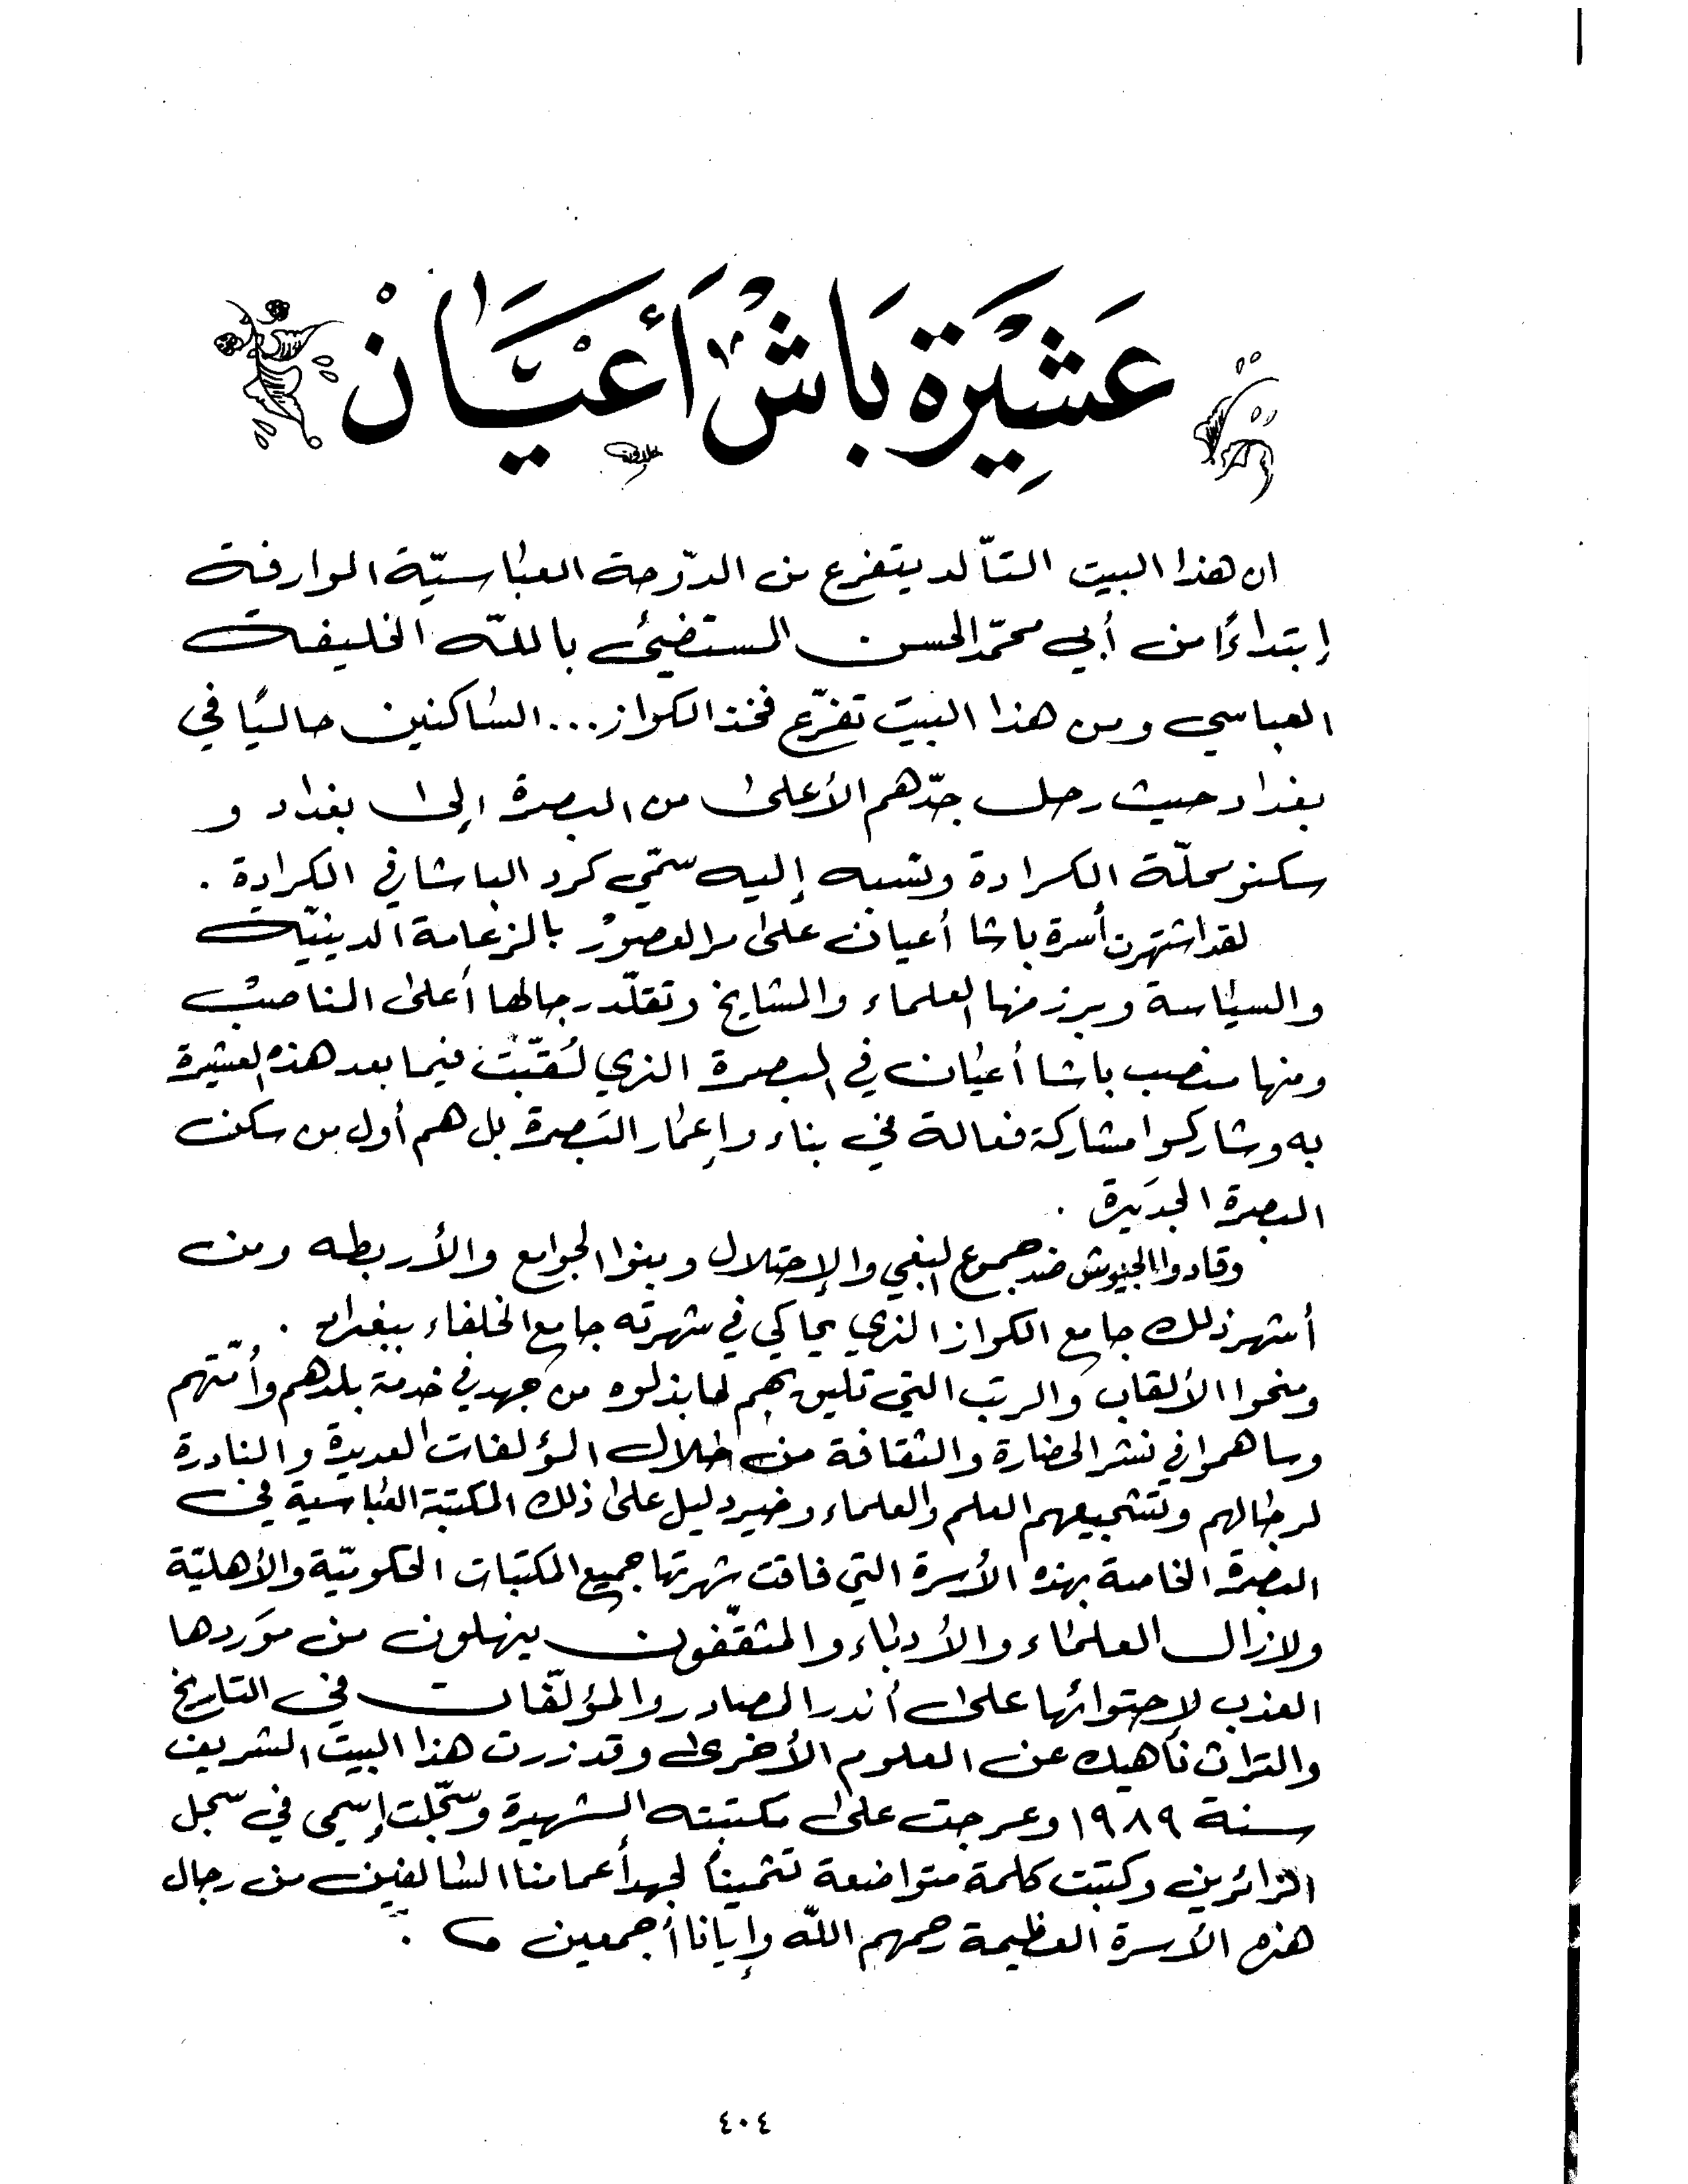 عَشِيْرَة بَاشْ أَعْيَانْ
ان هذا البيت التّالد يتفرع من الدّوحة العباسيّة الوارفة
إبتداءًا من أبي محمّد الحسن المستضيئ باللّه الخليفة
العباسي ومن هذا البيت تفرّع فخذ الكواز... الساكنين حاليًا في
بغداد حيث رحل جدّهم الأعلى من البصرة إلى بغداد و
سكنو محلّة الكرادة ونسبه إليه سمّي كرد الباشا في الكرادة .
لقد اشتهرت أسرة باشا أعيان على مر العصور بالزعامة الدينيّة
والسياسة وبرز منها العلماء والمشايخ وتقلّد رجالها أعلى المناصب
ومنها منصب باشا أعيان في البصرة الذي لُقّبت فيما بعد هذه العشيرة
به وشاركوا مشاركة فعالة في بناء وإعمار البَصرة بل هم أول من سكن
البصرة الجديدة .
وقادوا الجيوش ضد جموع البغي والإحتلال وبنوا الجوامع والأربطه ومن
أشهر ذلك جامع الكواز الذي يحاكي في شهرته جامع الخلفاء ببغداد .
ومنحوا الألقاب والرتب التي تليق بهم لما بذلوه من جهد في خدمة بلدهم وأُمّتهم
وساهموا في نشر الحضارة والثقافة من خلال المؤلفات العديدة والنادرة
لرجالهم وتشجيعهم العلم والعلماء وخير دليل على ذلك المكتبة العباسية في
البصرة الخاصة بهذه الأسرة التي فاقت شهرتها جميع المكتبات الحكوميّة والأهليّة
ولازال العلماء والأدباء والمثقّفون ينهلون من مَوردها
العذب لإحتوائها على أندر المصادر والمؤلّفات في التاريخ
والتراث ناهيك عن العلوم الأخرى وقد زرت هذا البيت الشريف
سنة ١٩٨٩ وعرجت على مكتبته الشهيرة وسجّلت إسمي في سجل
الزائرين وكتبت كلمة متواضعة تثمينًا لجهد أعمامنا السالفين من رجال
هذه الأسرة العظيمة رحمهم اللّه وإيانا أجمعين .
٤٠٤